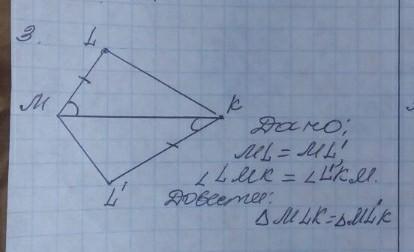 3.
L
M
K
L'
Дано:
ML = ML'
∠LMK = ∠L'KM.
Довести:
△MLK = △ML'K